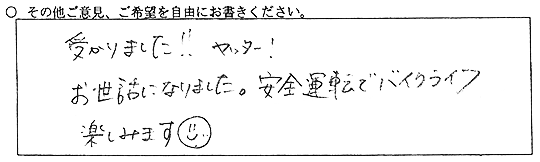 ○ その他ご意見、ご希望を自由にお書きください。
受かりました!! ヤッター!
お世話になりました。安全運転でバイクライフ
楽しみます